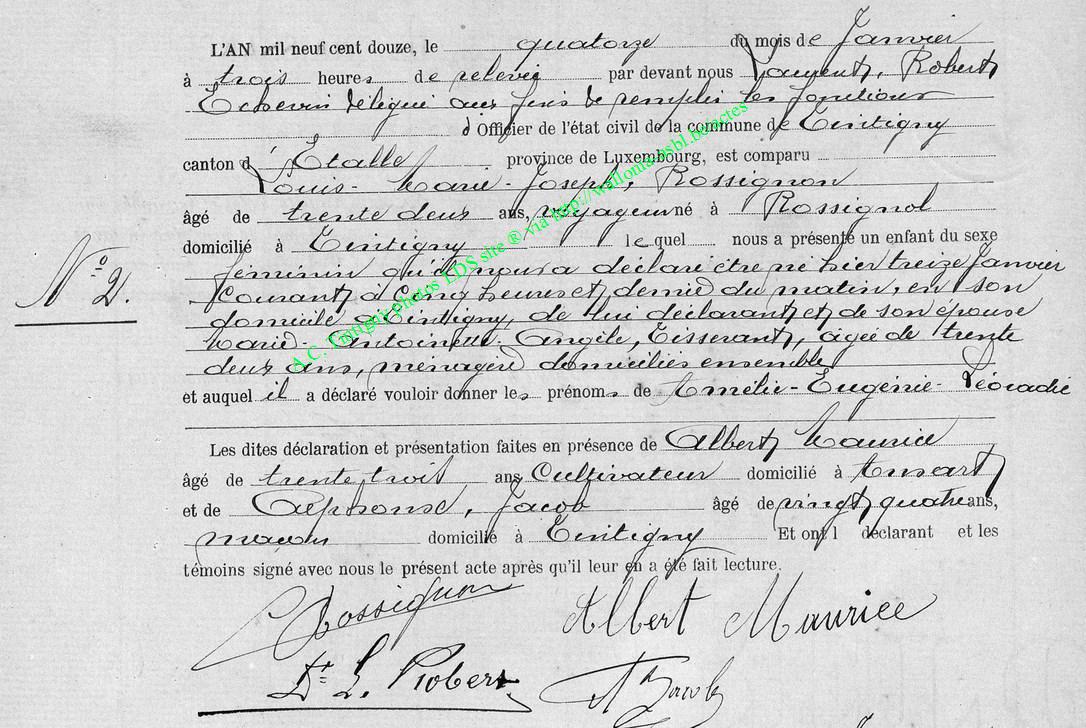 L'AN mil neuf cent douze, le quatorze du mois de Janvier
à trois heures de relevée par devant nous Laurent, Robert
Echevin délégué aux fins de remplir les fonctions
d'Officier de l'état civil de la commune de Tintigny
canton d'Etalle province de Luxembourg, est comparu
Louis-Marie-Joseph, Rossignon
âgé de trente deux ans, voyageur né à Rossignol
domicilié à Tintigny lequel nous a présenté un enfant du sexe
N° 2.
féminin qu'il nous a déclaré être né hier treize Janvier
courant à cinq heures et demie du matin, en son
domicile à Tintigny, de lui déclarant et de son épouse
Marie-Antoinette-Angèle, Tisserant, agée de trente
deux ans, ménagère domiciliés ensemble
et auquel il a déclaré vouloir donner les prénoms de Amélie-Eugénie-Léocadie
Les dites déclaration et présentation faites en présence de Albert Maurice
âgé de trente trois ans Cultivateur domicilié à Ansart
et de Alphonse, Jacob âgé de vingt quatre ans,
maçon domicilié à Tintigny Et ont l déclarant et les
témoins signé avec nous le présent acte après qu'il leur en a été fait lecture.
Rossignon Albert Maurice
Dr L. Robert A Jacob
A.C. Tintigny photos LDS site ® via http://wallonia.asbl.be/actes